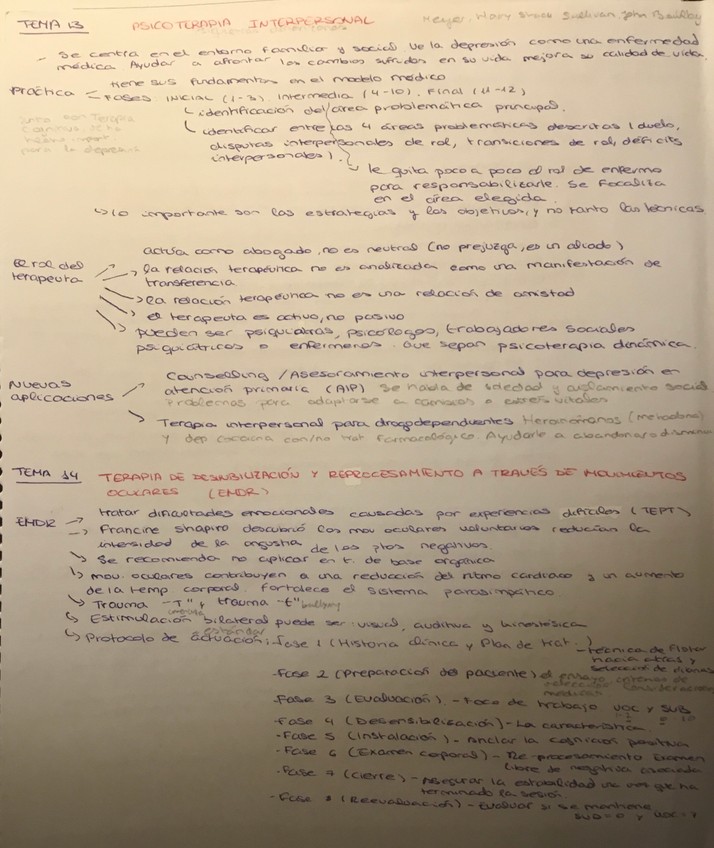 TEMA 13 PSICOTERAPIA INTERPERSONAL Meyer, Harry Stack Sullivan, John Bowlby
- Se centra en el entorno familiar y social. Ve la depresión como una enfermedad
médica. Ayudar a afrontar los cambios sufridos en su vida mejora su calidad de vida.
tiene sus fundamentos en el modelo médico
Práctica - FASES INICIAL (1-3) Intermedia (4-10). Final (11-12)
identificación del área problemática principal.
identificar entre las 4 áreas problemáticas descritas (duelo,
disputas interpersonales de rol, transiciones de rol, déficits
interpersonales).
Junto con Terapia
para la depresión
le quita poco a poco el rol de enfermo
para responsabilizarle. Se focaliza
en el área elegida.
lo importante son las estrategias y los objetivos, y no tanto las técnicas
El rol del
terapeuta
actúa como abogado, no es neutral (no prejuzga, es un aliado)
la relación terapéutica no es analizada como una manifestación de
transferencia
la relación terapéutica no es una relación de amistad
el terapeuta es activo, no pasivo
pueden ser psiquiatras, psicólogos, trabajadores sociales
psiquiátricos o enfermeros. Que sepan psicoterapia dinámica.
Nuevas
aplicaciones
Counselling / Asesoramiento interpersonal para depresión en
atención primaria (AIP) Se habla de soledad y aislamiento social
Problemas para adaptarse a cambios o estrés vitales
Terapia interpersonal para drogodependientes Heroinómanos (metadona)
y dep cocaína con/no trat farmacológico. Ayudarle a abandonar o disminuir
TEMA 14 TERAPIA DE DESENSIBILIZACIÓN Y REPROCESAMIENTO A TRAVÉS DE MOVIMIENTOS
OCULARES (EMDR)
EMDR → tratar dificultades emocionales causadas por experiencias difíciles (TEPT)
→ Francine Shapiro descubrió los mov oculares voluntarios reducían la
intensidad de la angustia de los ptos negativos.
Se recomienda no aplicar en t. de base orgánica
mov. oculares contribuyen a una reducción del ritmo cardiaco y un aumento
de la temp corporal. fortalece el sistema parasimpático
Trauma "T" y trauma "t" bullying
Estimulación bilateral puede ser: visual, auditiva y kinestésica
Protocolo de actuación: estándar
Fase 1 (Historia clínica y Plan de trat.) - técnica de flotar
hacia atrás y
selección de dianas
- Fase 2 (Preparación del paciente)
- Fase 3 (Evaluación) - Foco de trabajo VOC y SUD
- Fase 4 (Desensibilización) - La característica
- Fase 5 (Instalación) - Anclar la cognición positiva
- Fase 6 (Examen corporal) - Re-procesamiento Examen
libre de negativa asociada
- Fase 7 (Cierre) - Asegurar la estabilidad una vez que ha
terminado la sesión.
- Fase 8 (Reevaluación) - Evaluar si se mantiene
SUD = 0 y VOC = 7